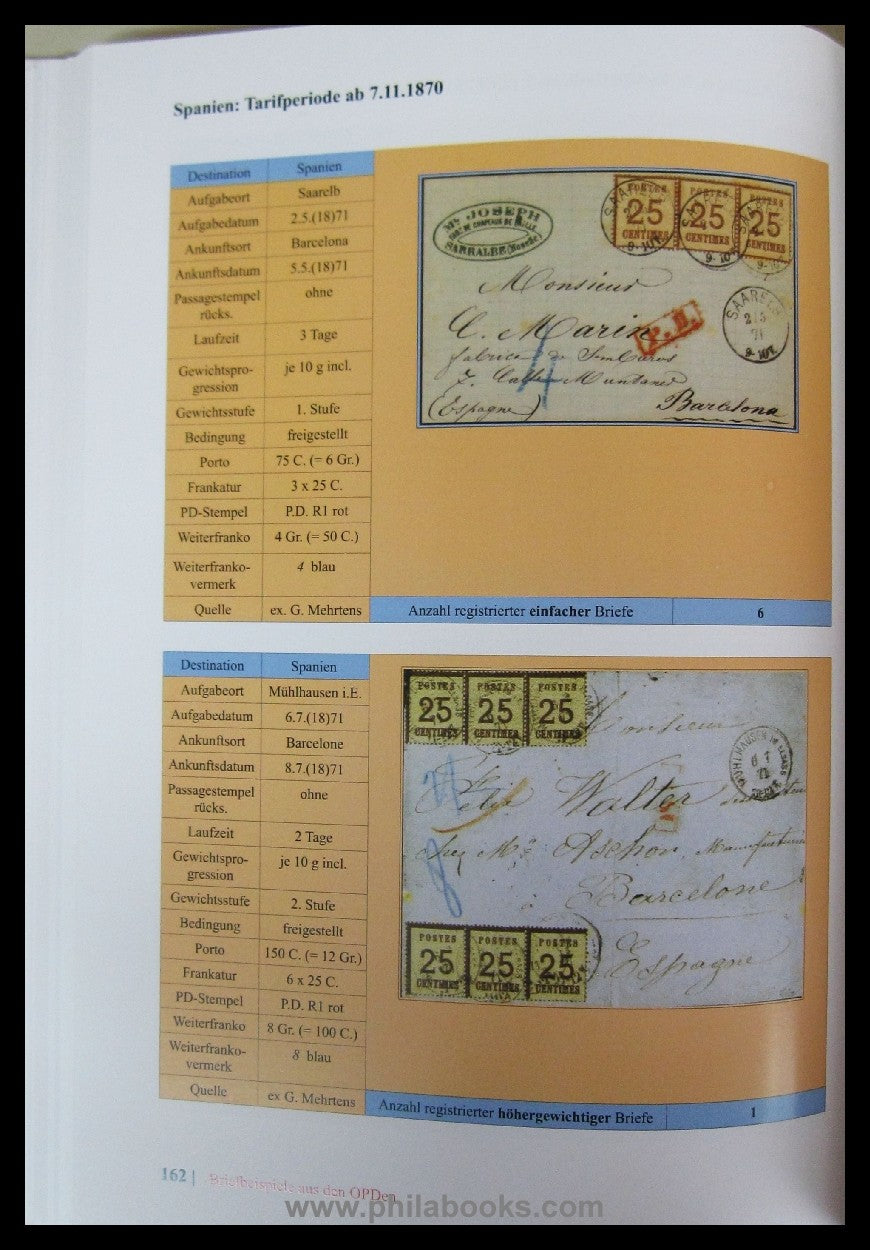 Spanien: Tarifperiode ab 7.11.1870
Destination Spanien
Aufgabeort Saarelb
Aufgabedatum 2.5.(18)71
Ankunftsort Barcelona
Ankunftsdatum 5.5.(18)71
Passagestempel ohne
rücks.
Laufzeit 3 Tage
Gewichtspro- je 10 g incl.
gression
Gewichtsstufe 1. Stufe
Bedingung freigestellt
Porto 75 C. (= 6 Gr.)
Frankatur 3 x 25 C.
PD-Stempel P.D. R1 rot
Weiterfranko 4 Gr. (= 50 C.)
Weiterfranko- 4 blau
vermerk
Quelle ex. G. Mehrtens
Mn JOSEPH
SARRALBE (Moselle)
POSTES POSTES POSTES
25 25 25
CENTIMES CENTIMES CENTIMES
Monsieur
C. Marin
P.D.
4
7. Calle Muntaner
(Espagne)
Barcelona
Anzahl registrierter einfacher Briefe 6
Destination Spanien
Aufgabeort Mühlhausen i.E.
Aufgabedatum 6.7.(18)71
Ankunftsort Barcelone
Ankunftsdatum 8.7.(18)71
Passagestempel ohne
rücks.
Laufzeit 2 Tage
Gewichtspro- je 10 g incl.
gression
Gewichtsstufe 2. Stufe
Bedingung freigestellt
Porto 150 C. (= 12 Gr.)
Frankatur 6 x 25 C.
PD-Stempel P.D. R1 rot
Weiterfranko 8 Gr. (= 100 C.)
Weiterfranko- 8 blau
vermerk
Quelle ex G. Mehrtens
POSTES POSTES POSTES
25 25 25
CENTIMES CENTIMES CENTIMES
Monsieur
Félix Walter
Barcelone
Espagne
8
POSTES POSTES POSTES
25 25 25
CENTIMES CENTIMES CENTIMES
Anzahl registrierter höhergewichtiger Briefe 1
162 | Briefbeispiele aus den OPDen
www.philabooks.com